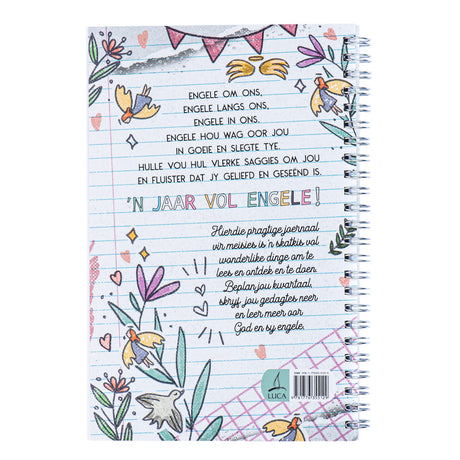 ENGELE OM ONS,
ENGELE LANGS ONS,
ENGELE IN ONS.
ENGELE HOU WAG OOR JOU
IN GOEIE EN SLEGTE TYE.
HULLE VOU HUL VLERKE SAGGIES OM JOU
EN FLUISTER DAT JY GELIEFD EN GESEËND IS.
'N JAAR VOL ENGELE!
Hierdie pragtige joernaal
vir meisies is 'n skatkis vol
wonderlike dinge om te
lees en ontdek en te doen.
Beplan jou kwartaal,
skryf jou gedagtes neer
en leer meer oor
God en sy engele.
LUCA